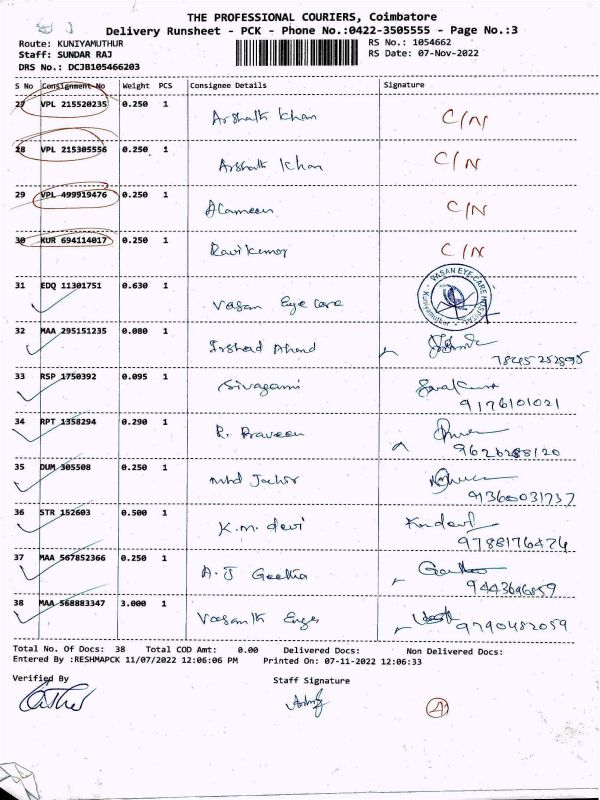 THE PROFESSIONAL COURIERS, Coimbatore
Delivery Runsheet - PCK - Phone No.:0422-3505555 - Page No.:3
Route: KUNIYAMUTHUR RS No.: 1054662
Staff: SUNDAR RAJ RS Date: 07-Nov-2022
DRS No.: DCJB105466203
S No Consignment No Weight PCS Consignee Details Signature
27 VPL 215520235 0.250 1 Arshath Khan C/N
28 VPL 215305556 0.250 1 Arshath Khan C/N
29 VPL 499919476 0.250 1 Alameen C/N
30 KUR 694114017 0.250 1 Ravikumar C/N
31 EDQ 11301751 0.630 1 Vasan Eye Care VASAN EYE CARE HOSPITAL Kuniyamuthur
32 MAA 295151235 0.080 1 Irshad Ahamd
33 RSP 1750392 0.095 1 Sivagami
9176101021
34 RPT 1358294 0.290 1 R. Praveen
9626288120
35 DUM 305508 0.250 1 Mhd Jachir
91360031737
36 STR 152603 0.500 1 K.M. devi
9788176474
37 MAA 567852366 0.250 1 A.J Geetha
9443696859
38 MAA 568883347 3.000 1 Vasanth Enges
9790482059
Total No. Of Docs: 38 Total COD Amt: 0.00 Delivered Docs: Non Delivered Docs:
Entered By :RESHMAPCK 11/07/2022 12:06:06 PM Printed On: 07-11-2022 12:06:33
Verified By Staff Signature
4